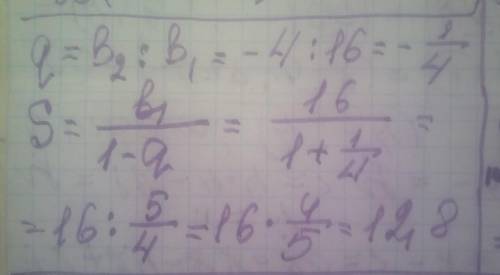 q = b₂ : b₁ = -4 : 16 = -1/4
S = b₁/(1-q) = 16/(1+1/4) =
= 16 : 5/4 = 16 · 4/5 = 12,8